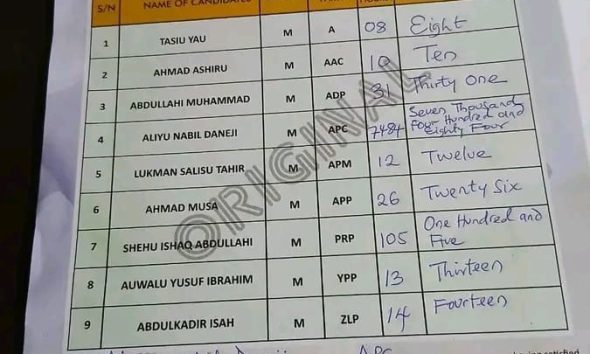 S/N NAME OF CANDIDATES
1 TASIU YAU M A 08 Eight
2 AHMAD ASHIRU M AAC 10 Ten
3 ABDULLAHI MUHAMMAD M ADP 31 Thirty One
4 ALIYU NABIL DANEJI M APC 7484 Seven Thousand
Four Hundred and
Eighty Four
5 LUKMAN SALISU TAHIR M APM 12 Twelve
6 AHMAD MUSA M APP 26 Twenty Six
7 SHEHU ISHAQ ABDULLAHI M PRP 105 One Hundred and
Five
8 AUWALU YUSUF IBRAHIM M YPP 13 Thirteen
9 ABDULKADIR ISAH M ZLP 14 Fourteen
ORIGINAL
APC
satisfied